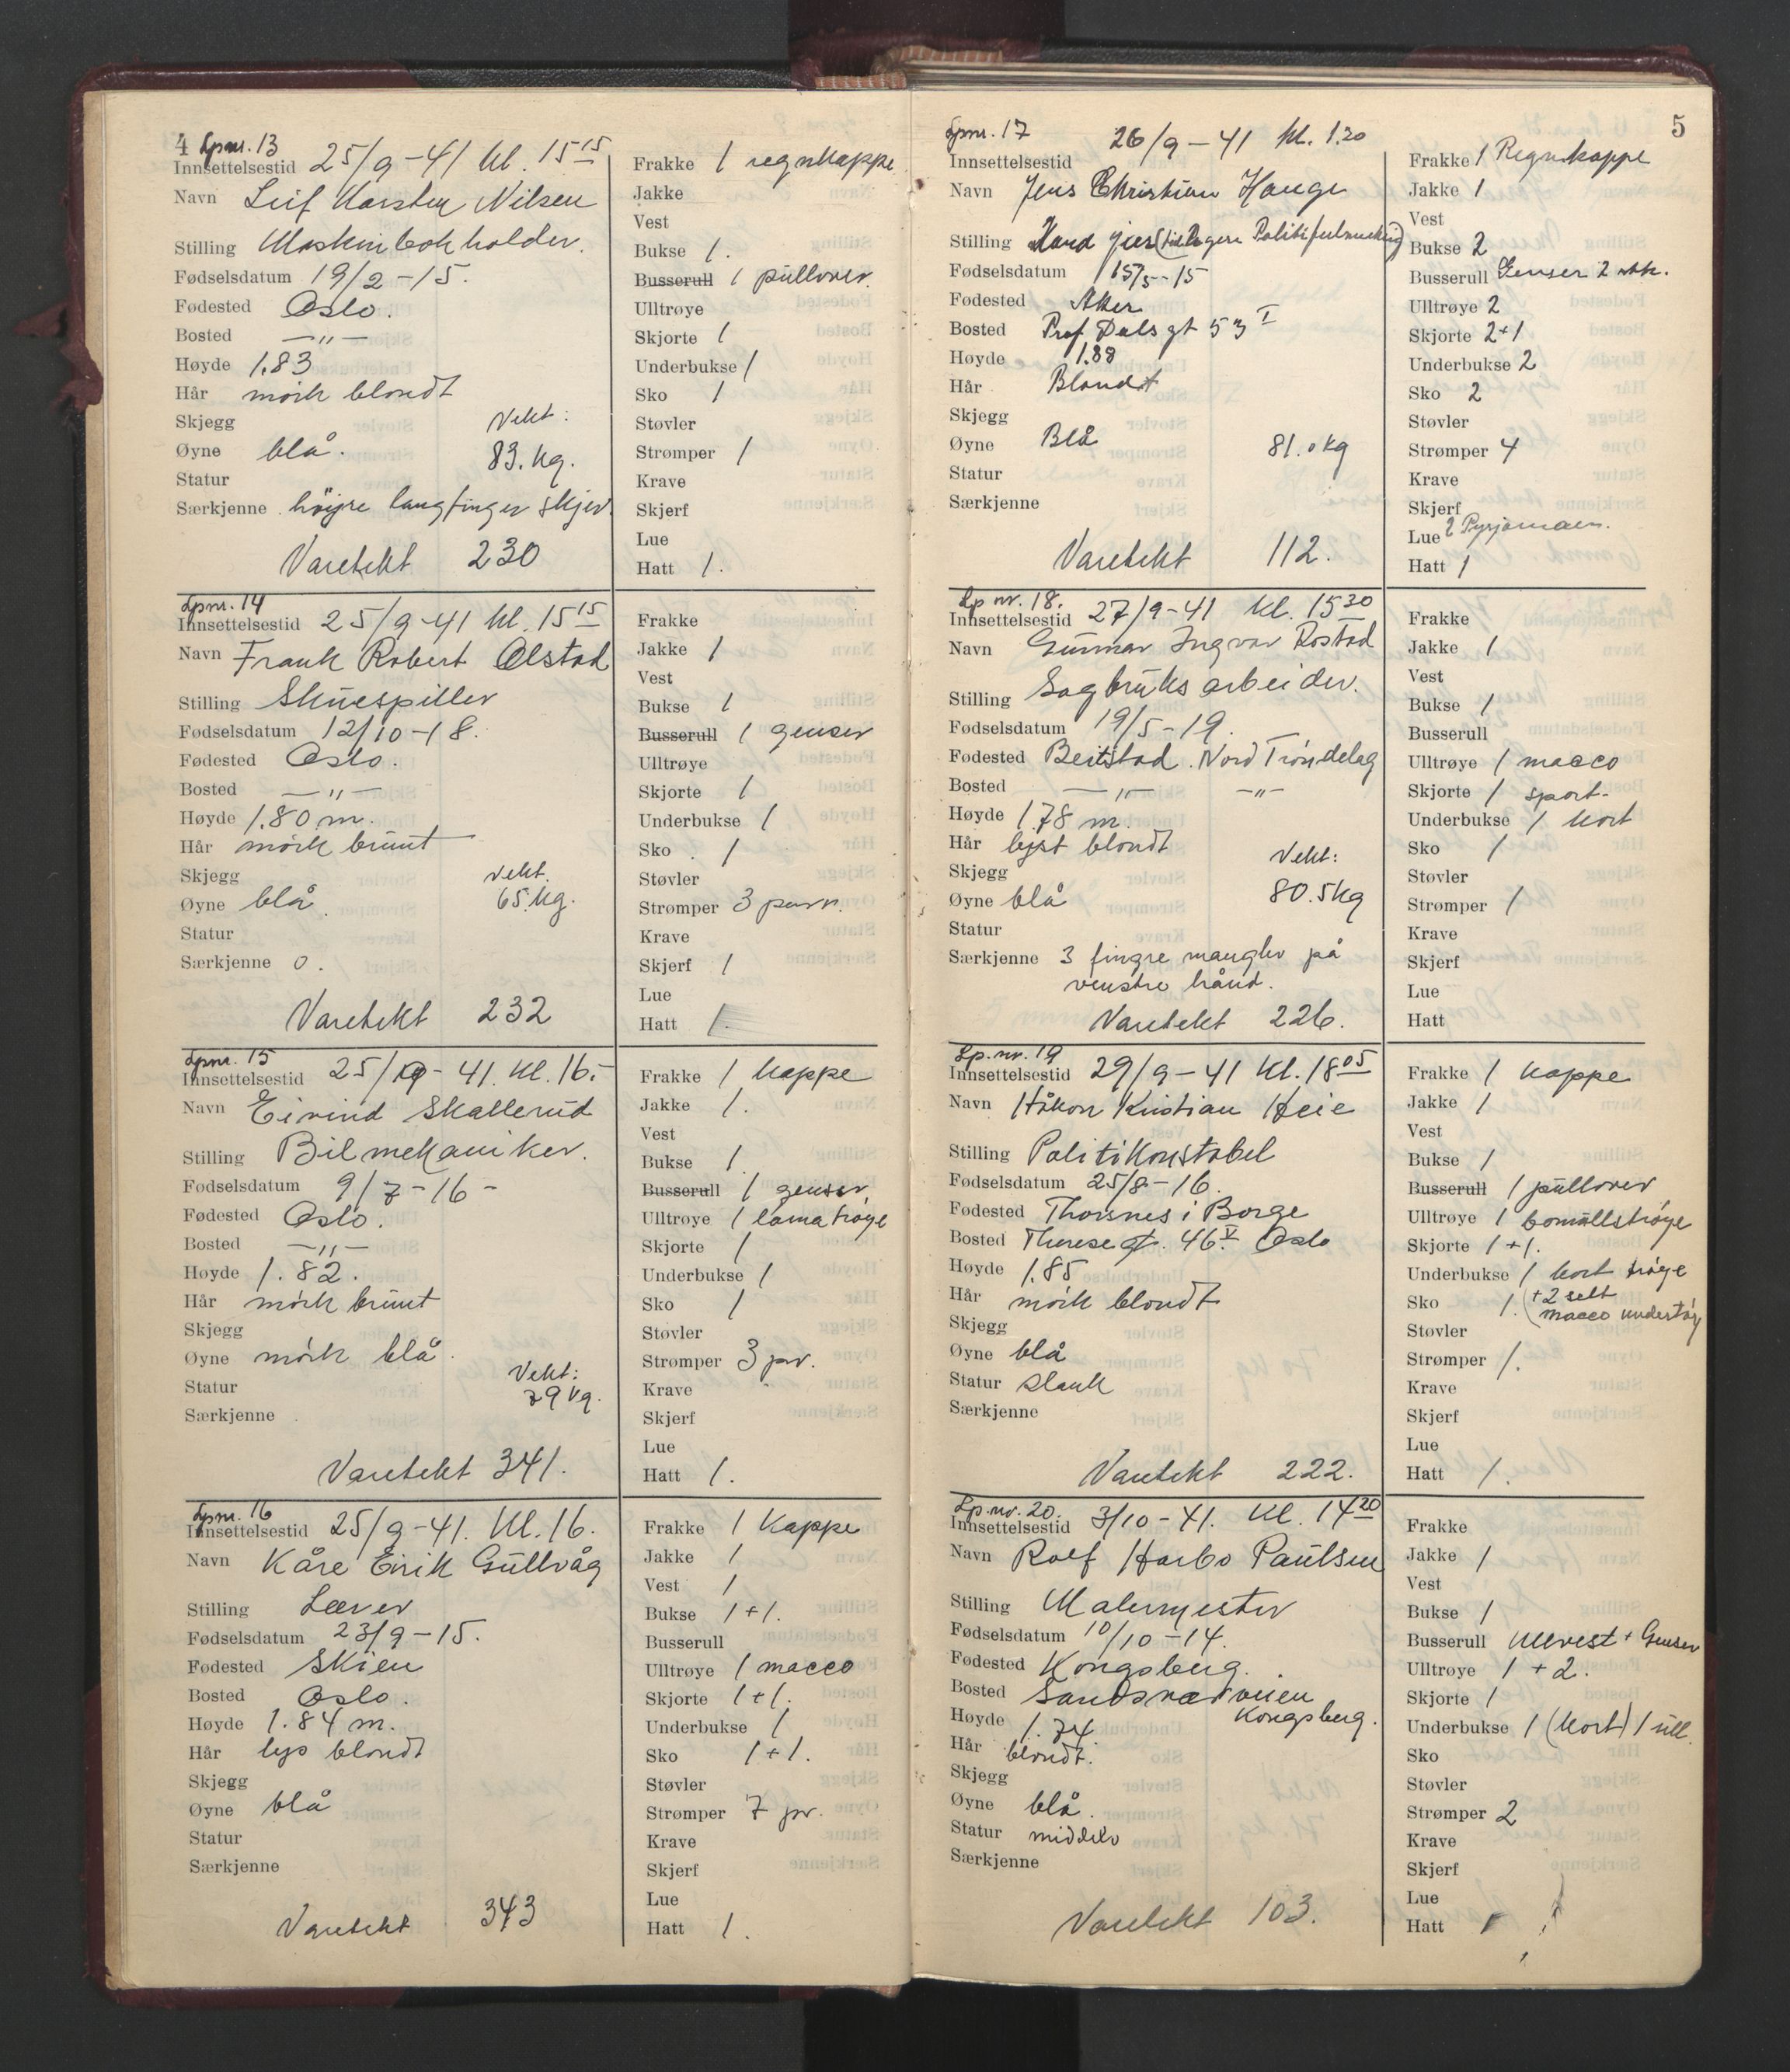 4 Lpnr. 13
Innsettelsestid 25/9-41 kl. 15 15
Navn Leif Karsten Nilsen
Stilling Maskinbokholder.
Fødselsdatum 19/2-15.
Fødested Oslo.
Bosted —"—
Høyde 1.83
Hår mörk blondt
Skjegg Vekt:
Øyne blå. 83. kg.
Statur
Særkjenne høyre langfinger skjev.
Varetekt 230
Frakke 1 regnkappe
Jakke
Vest
Bukse 1.
Busserull 1 pullover.
Ulltrøye
Skjorte 1
Underbukse 1
Sko 1
Støvler
Strømper 1
Krave
Skjerf
Lue
Hatt 1.
Lpnr. 14
Innsettelsestid 25/9-41 kl. 15 15
Navn Frank Robert Olstad
Stilling Skuespiller
Fødselsdatum 12/10-18.
Fødested Oslo.
Bosted —"—
Høyde 1.80 m.
Hår mörk brunt
Skjegg Vekt.
Øyne blå 65. kg.
Statur
Særkjenne 0.
Varetekt 232
Frakke
Jakke 1
Vest
Bukse 1
Busserull 1 genser
Ulltrøye
Skjorte 1
Underbukse 1
Sko 1
Støvler
Strømper 3 parr.
Krave
Skjerf 1
Lue
Hatt 1.
Lpnr. 15
Innsettelsestid 25/9-41. kl. 16.-
Navn Eivind Skallerud
Stilling Bilmekaniker.
Fødselsdatum 9/7-16-
Fødested Oslo.
Bosted —"—
Høyde 1.82.
Hår mörk brunt
Skjegg
Øyne mörk blå. Vekt:
Statur 79 kg.
Særkjenne
Varetekt 341.
Frakke 1 kappe
Jakke 1.
Vest
Bukse 1
Busserull 1 genser
Ulltrøye 1 lama trøye
Skjorte 1
Underbukse 1
Sko 1
Støvler
Strømper 3 pr.
Krave
Skjerf
Lue
Hatt 1.
Lpnr. 16
Innsettelsestid 25/9-41. kl. 16.
Navn Kåre Eirik Gullvåg
Stilling Lærer
Fødselsdatum 23/9-15.
Fødested Skien
Bosted Oslo.
Høyde 1.84 m.
Hår lys blondt
Skjegg
Øyne blå
Statur
Særkjenne
Varetekt 343
Frakke 1 Kappe
Jakke 1
Vest 1
Bukse 1+1.
Busserull
Ulltrøye 1 macco
Skjorte 1+1.
Underbukse 1
Sko 1+1.
Støvler
Strømper 7 pr.
Krave
Skjerf
Lue
Hatt 1.
5
Lpnr. 17
Innsettelsestid 26/9-41 kl. 1.20
Navn Jens Christian Hauge
Stilling Kand jur (tidligere Politifullmektig)
Fødselsdatum 15/5-15
Fødested Aker
Bosted Prof Dals gt 53 I
Høyde 1.88
Hår Blondt
Skjegg
Øyne Blå 81.0 kg
Statur
Særkjenne
Varetekt 112.
Frakke 1 Regnkappe
Jakke 1
Vest
Bukse 2
Busserull Genser 2 stk.
Ulltrøye 2
Skjorte 2+1
Underbukse 2
Sko 2
Støvler
Strømper 4
Krave
Skjerf
Lue 2 Pyrjamaen.
Hatt 1
Lp nr. 18.
Innsettelsestid 27/9-41 kl. 15 30
Navn Gunnar Ingvar Rostad
Stilling Sagbruksarbeider.
Fødselsdatum 19/5-19.
Fødested Beitstad. Nord Trøndelag
Bosted —"— —"—
Høyde 1.78 m.
Hår lyst blondt
Skjegg Vekt:
Øyne blå 80.5 kg
Statur
Særkjenne 3 fingre mangler på
venstre hånd.
Varetekt 226.
Frakke
Jakke 1
Vest
Bukse 1
Busserull
Ulltrøye 1 macco
Skjorte 1 sport-
Underbukse 1 kort
Sko 1
Støvler
Strømper 1
Krave
Skjerf
Lue
Hatt
Lp.nr. 19
Innsettelsestid 29/9-41 kl. 18 05
Navn Håkon Kristian Heie
Stilling Politikonstabel
Fødselsdatum 25/8-16.
Fødested Thorsnes i Borge
Bosted Therese gt. 46. V Oslo
Høyde 1.85
Hår mörk blondt
Skjegg
Øyne blå
Statur slank
Særkjenne
Varetekt 222.
Frakke 1 kappe
Jakke 1
Vest
Bukse 1
Busserull 1 pullover
Ulltrøye 1 bomullstrøye
Skjorte 1+1.
Underbukse 1 kort trøye
Sko 1. (+2 sett
macco undertøy
Støvler
Strømper 1.
Krave
Skjerf
Lue
Hatt 1.
Lp.nr. 20.
Innsettelsestid 3/10-41. kl. 14 20
Navn Rolf Harbo Paulsen
Stilling Malermester
Fødselsdatum 10/10-14.
Fødested Kongsberg.
Bosted Sandsværveien
Kongsberg.
Høyde 1.74.
Hår blondt.
Skjegg
Øyne blå.
Statur middels
Særkjenne
Varetekt 103.
Frakke
Jakke 1
Vest
Bukse 1
Busserull Ullvest + Genser
Ulltrøye 1+2.
Skjorte 1
Underbukse 1 (kort) 1 ull.
Sko
Støvler
Strømper 2
Krave
Skjerf
Lue
Hatt